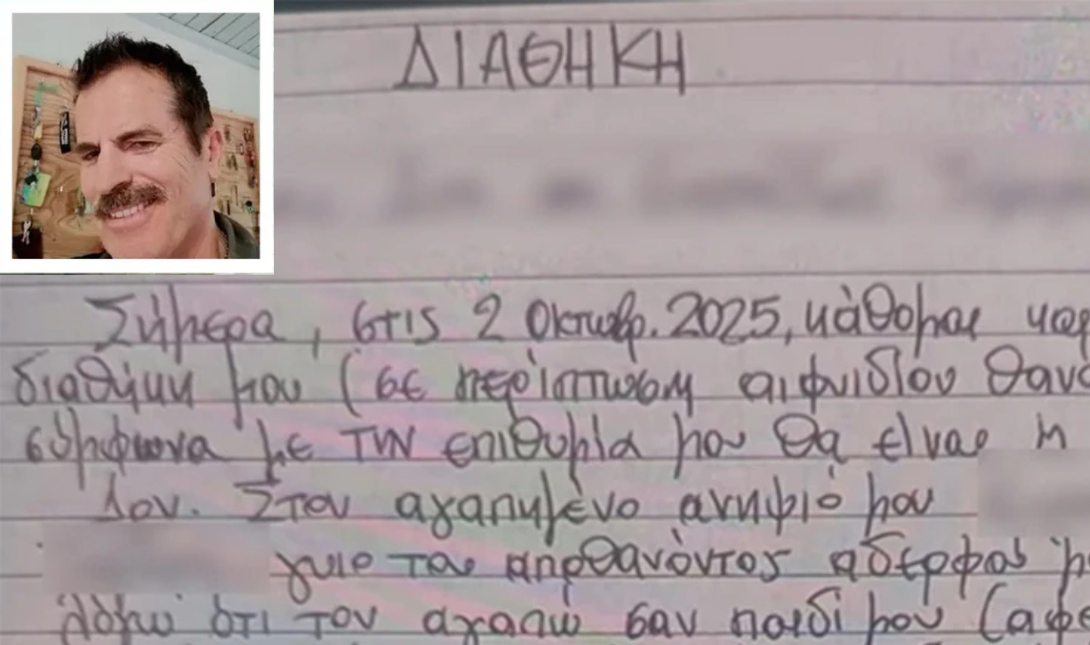 ΔΙΑΘΗΚΗ
Σήμερα, στις 2 Οκτωβρ. 2025, κάθομαι
διαθήκη μου (σε περίπτωση αιφνιδίου
σύμφωνα με την επιθυμία μου θα είναι η
1ον. Στον αγαπημένο ανηψιό μου
γυιο του αποθανόντος αδερφού
λόγω ότι τον αγαπώ σαν παιδί μου